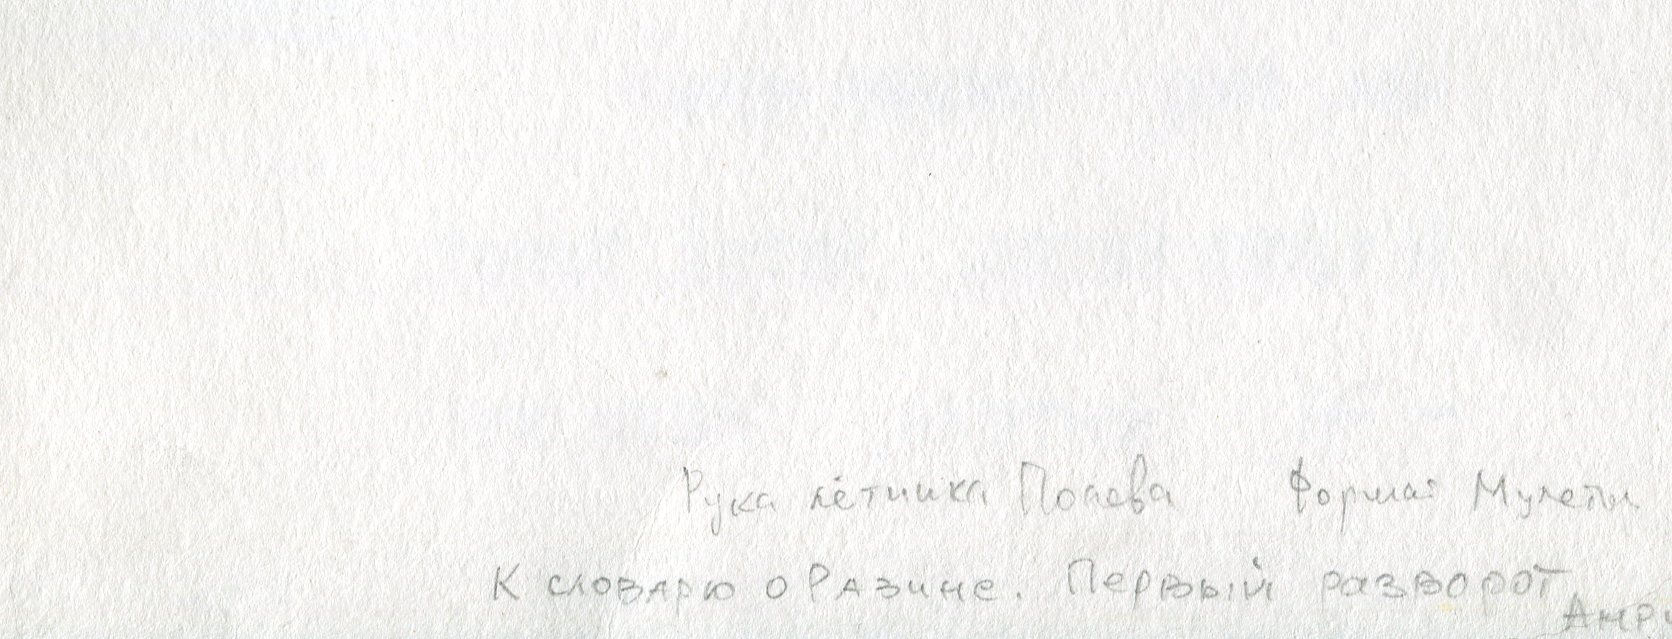 Рука лётчика Попова Формат Мулеты
К словарю о Разине. Первый разворот